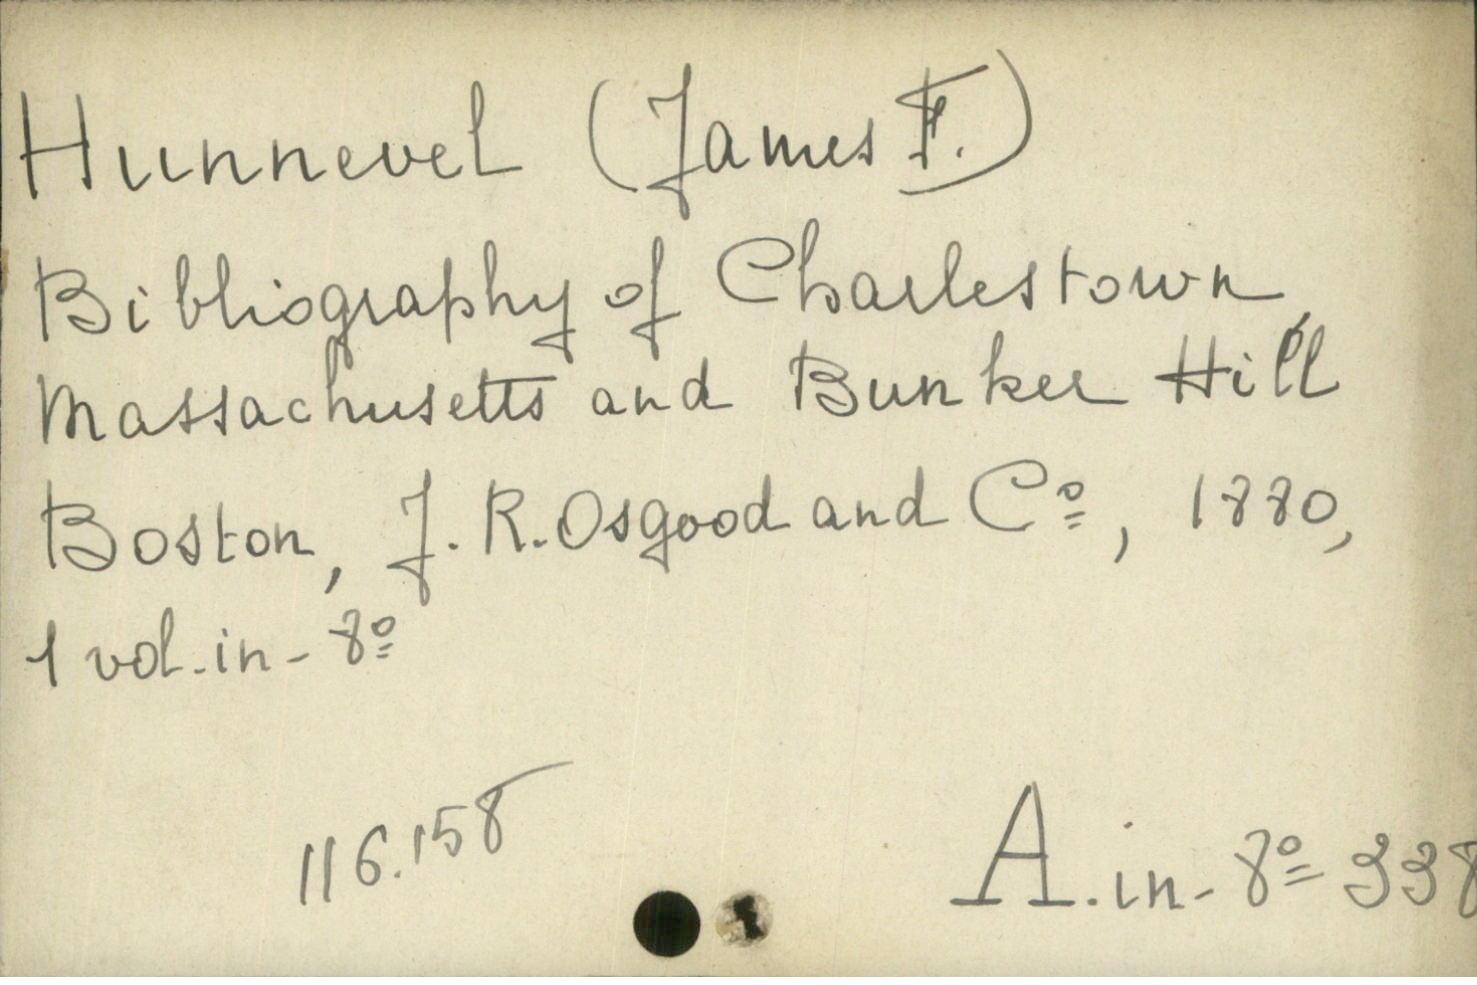 Hunnevel (James F.)
Bibliography of Charlestown,
Massachusetts and Bunker Hill
Boston, J. R. Osgood and Cº, 1880,
1 vol. in-8º
116.158
A. in-8º 338